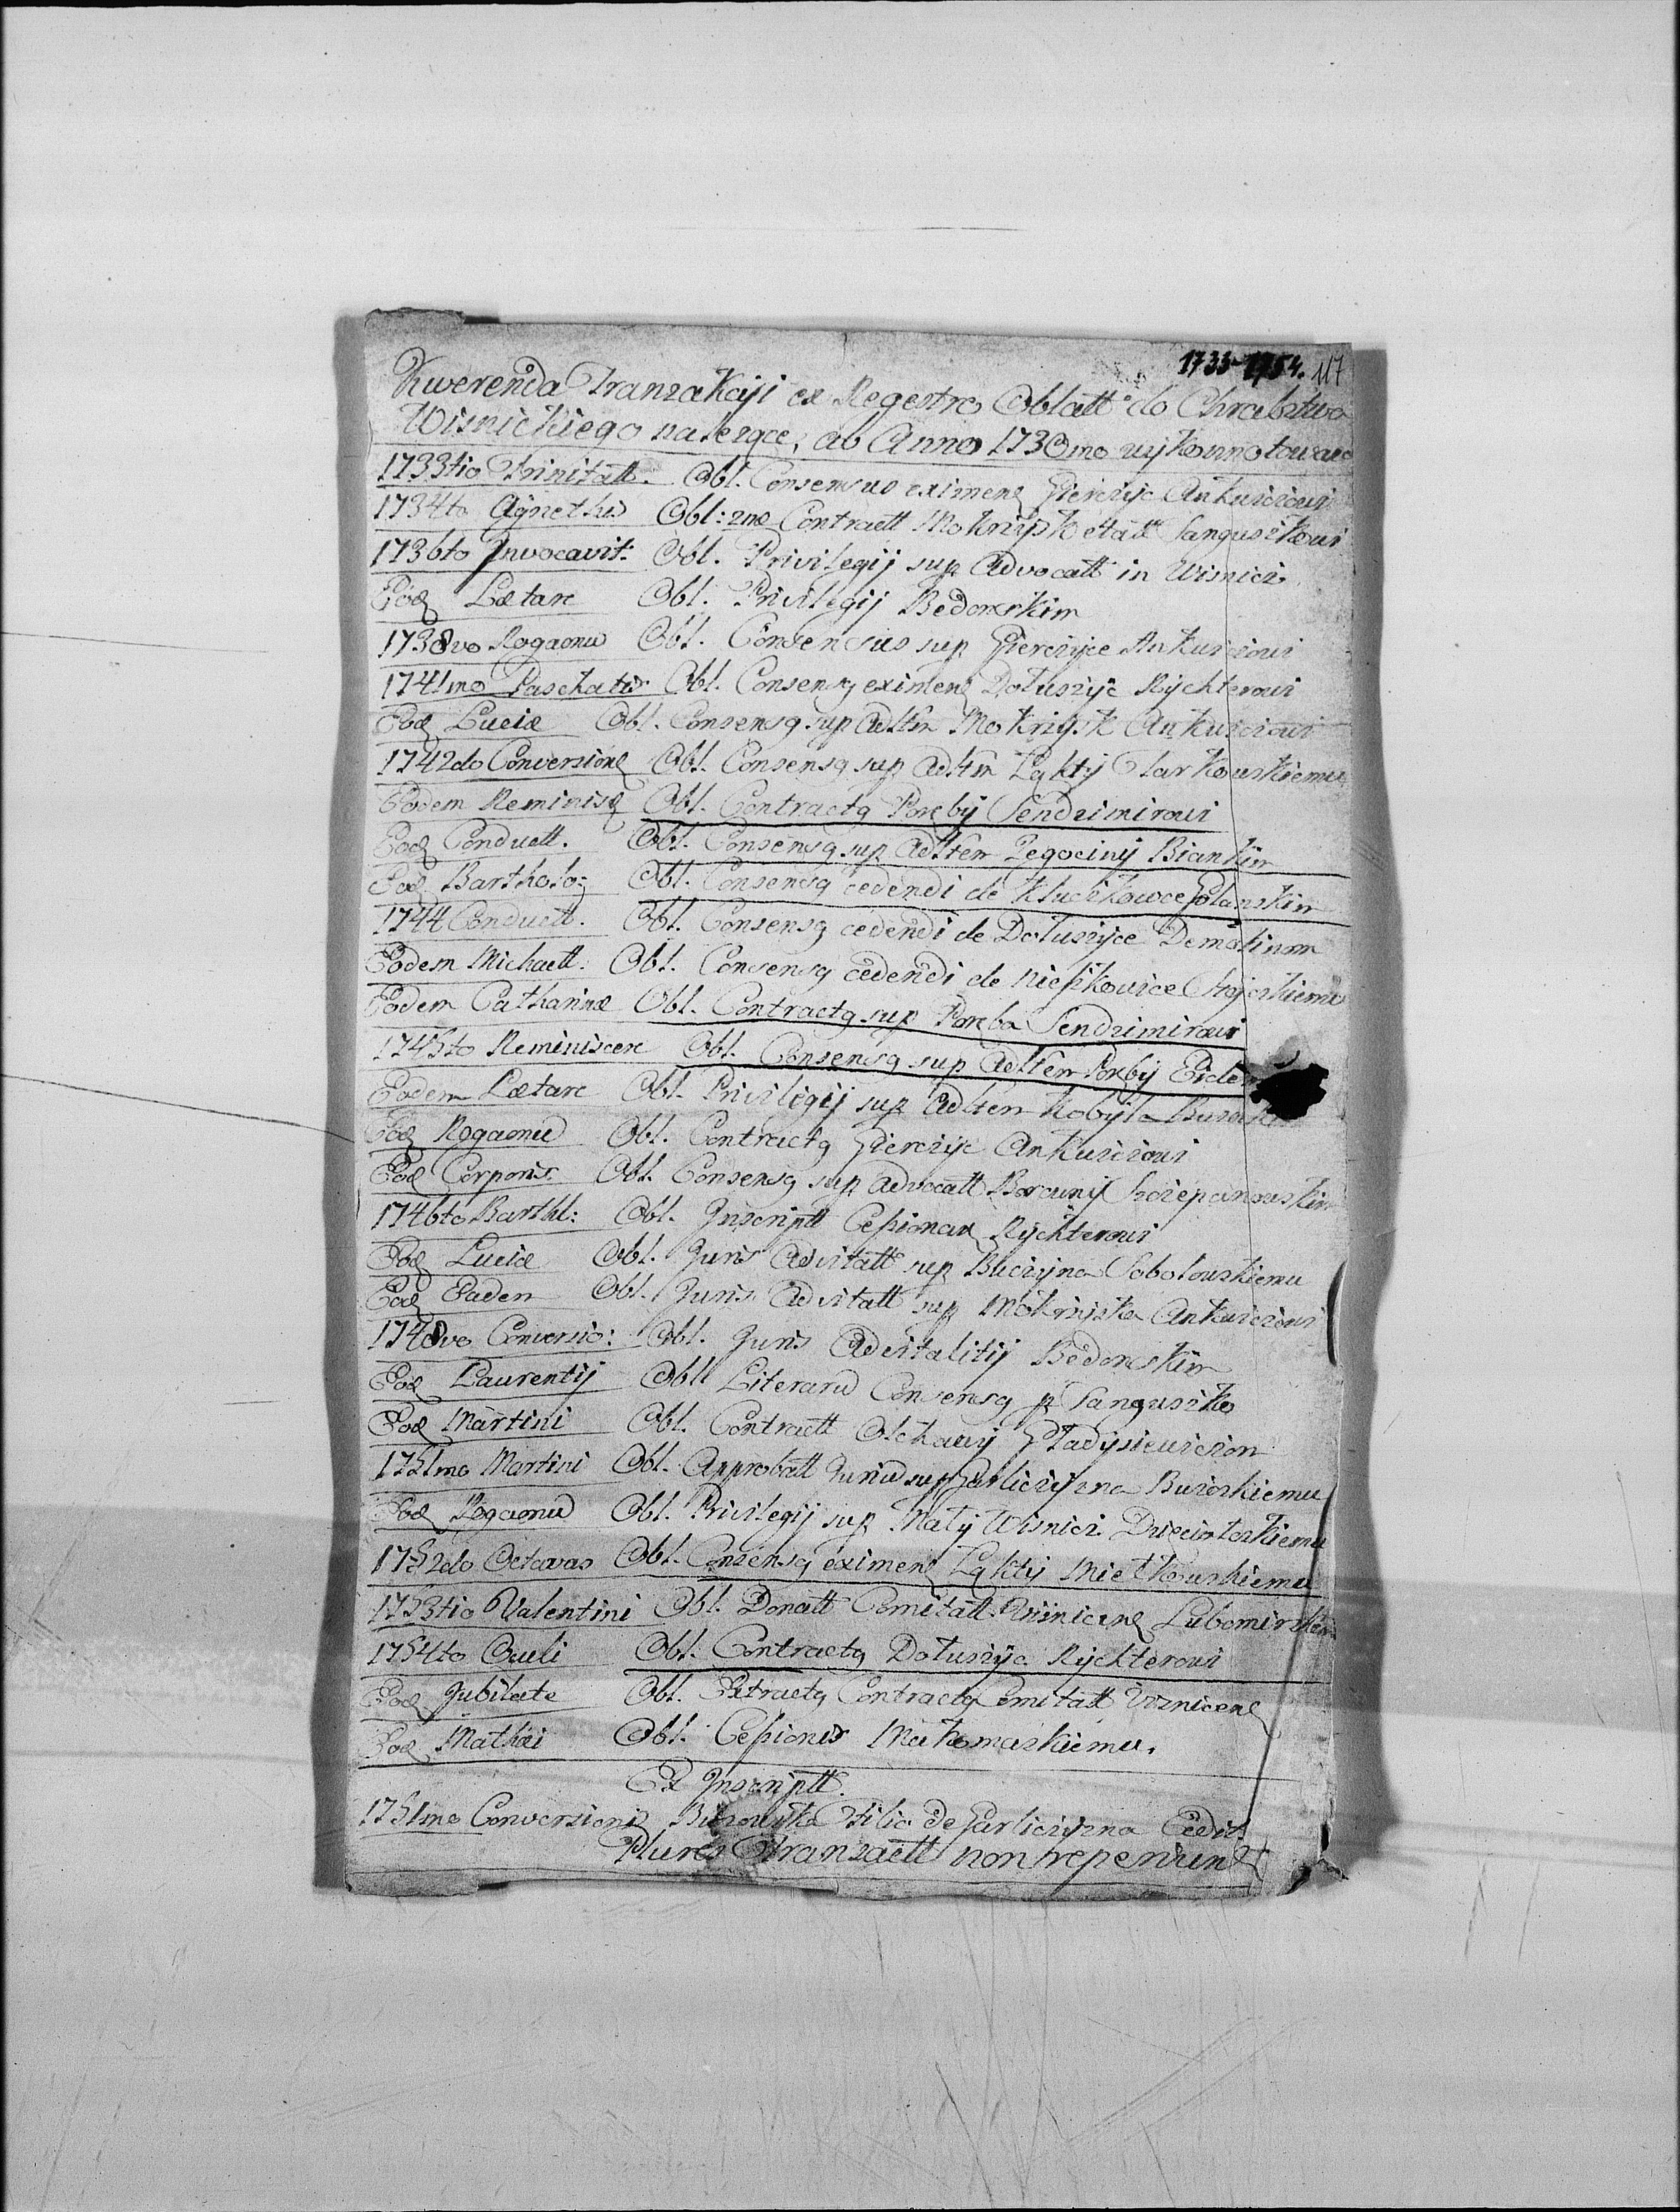 1733-1754. 117
Kwerenda Tranzakcyi ex Regestro Oblatt do Chrabstwa
Wisnickiego nalezące, ab Anno 1730mo wykonnotowane
1733tio Trinitatt. Obl. Consensus eximen Gierczyc Ankwiczowi
1734to Agnethis Obl: zne Contractt Mokrzysk etatt Sanguszkowi
1736to Invocavit: Obl. Privilegij sup Advocatt in Wisnicz
Eod Lætare Obl. Privilegij Bedonskim
1738vo Rogaonu Obl. Consensus sup Gierczyce Ankwiczowi
1741mo Paschatis Obl. Consensq eximen Dołuszyc Rychterowi
Eod Luciæ Obl. Consensq sup Adltm Mokrzysk Ankwiczowi
1742do Conversione Obl. Consensq sup Adltm Łąkty Slarkowskiemu
Eodem Reminisc Obl. Contractq Poręby Sendzimirowi
Eod Conductt. Obl. Consensq sup Adltem Zegociny Biankim
Eod Bartholo: Obl. Consensq cedendi de Kluczkowce Golanskim
1744 Conductt. Obl. Consensq cedendi de Dołuszyce Dematinom
Eodem Michaell: Obl. Consensq cedendi de Nieszkowice Stojoskiemu
Eodem Catharinæ Obl. Contractq sup Poręba Sendzimirowi
1745to Reminiscere Obl. Consensq sup Adltem Poręby
Eodem Lætare Obl. Privilegij sup Adltem Kobyla
Eod Rogaonu Obl. Contractq Gierczyc Ankwiczowi
Eod Corporis. Obl. Consensq sup Advocatt Borowny Szczepanowskim
1746to Barthl: Obl. Inscriptt Cessionar Rychterowi
Eod Luciæ Obl. Juris Advitatt sup Buczyna Sobolowskiemu
Eod Eadem Obl. Juris Advitatt sup Mokrzyska Ankwiczowi
1748vo Conversio: Obl. Juris Advitalitij Bedonskim
Eod Laurentij Obll Literaru Consensq p Sanguszko
Eod Martini Obl. Contractt Olchawy Gładysiewiczom
1751mo Martini Obl. Approbatt Juriu sup Garliczyzna Buzoskiemu
Eod Rogaonu Obl. Privilegij sup Mały Wisnicz Dzięcioloskiemu
1752do Octavas Obl. Consensq eximen Łąkty Mietkowskiemu
1753tio Valentini Obl. Donatt Comitatt Wisnicen Lubomirskim
1754to Oculi Obl. Contractq Dołuszyc Rychterowi
Eod Jubilate Obl. Extractq Contractq Comitatt Wisnicen
Eod Mathæi Obl. Cessionis Makomaskiemu.
Ex Inscriptt.
1751mo Conversionis Filio de Garliczyzna Cedit
Plures Tranzactt non reperiunt